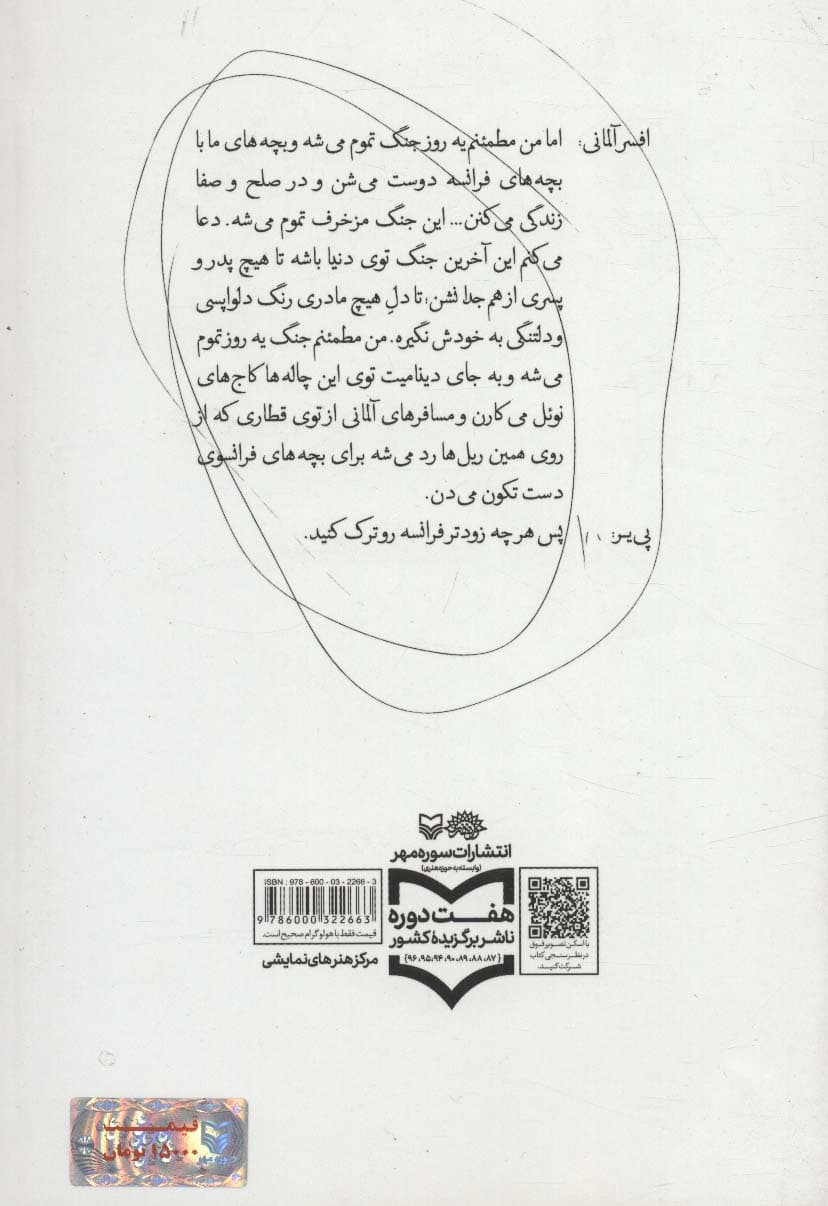 افسر آلمانی: اما من مطمئنم یه روز جنگ تموم می‌شه و بچه‌های ما با
بچه‌های فرانسه دوست می‌شن و در صلح و صفا
زندگی می‌کنن... این جنگ مزخرف تموم می‌شه. دعا
می‌کنم این آخرین جنگ توی دنیا باشه تا هیچ پدر و
پسری از هم جدا نشن؛ تا دلِ هیچ مادری رنگ دلواپسی
و دلتنگی به خودش نگیره. من مطمئنم جنگ یه روز تموم
می‌شه و به جای دینامیت توی این چاله‌ها کاج‌های
نوئل می‌کارن و مسافرهای آلمانی از توی قطاری که از
روی همین ریل‌ها رد می‌شه برای بچه‌های فرانسوی
دست تکون می‌دن.
پی‌یر: پس هر چه زودتر فرانسه رو ترک کنید.
انتشارات سوره مهر
(وابسته به حوزه هنری)
هفت دوره
ناشر برگزیدهٔ کشور
{۸۷، ۸۸، ۸۹، ۹۰، ۹۴، ۹۵، ۹۶}
ISBN: 978-600-03-2266-3
9 786000 322663
قیمت فقط با هولوگرام صحیح است.
مرکز هنرهای نمایشی
با اسکن تصویر فوق
در نظرسنجی کتاب
شرکت کنید.
قیمت
۱۵۰۰۰ تومان
سوره مهر